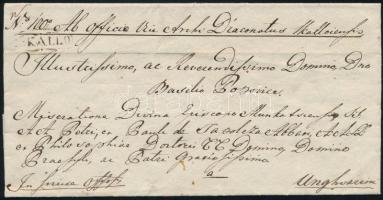 Ab Officio Vice Archi Diaconatus Kalloensis
KALLO
Illustrissimo, ac Reverendissimo Domino Dno
Basilio Popovics
Miseratione Divina Episcopo Munkatsiensi
et Pauli de Tapoltza Abbati, AA LL
et Philosophiae Doctori Domino Domino
Praesuli, ac Patri Gratiosissimo
a
Unghvarini